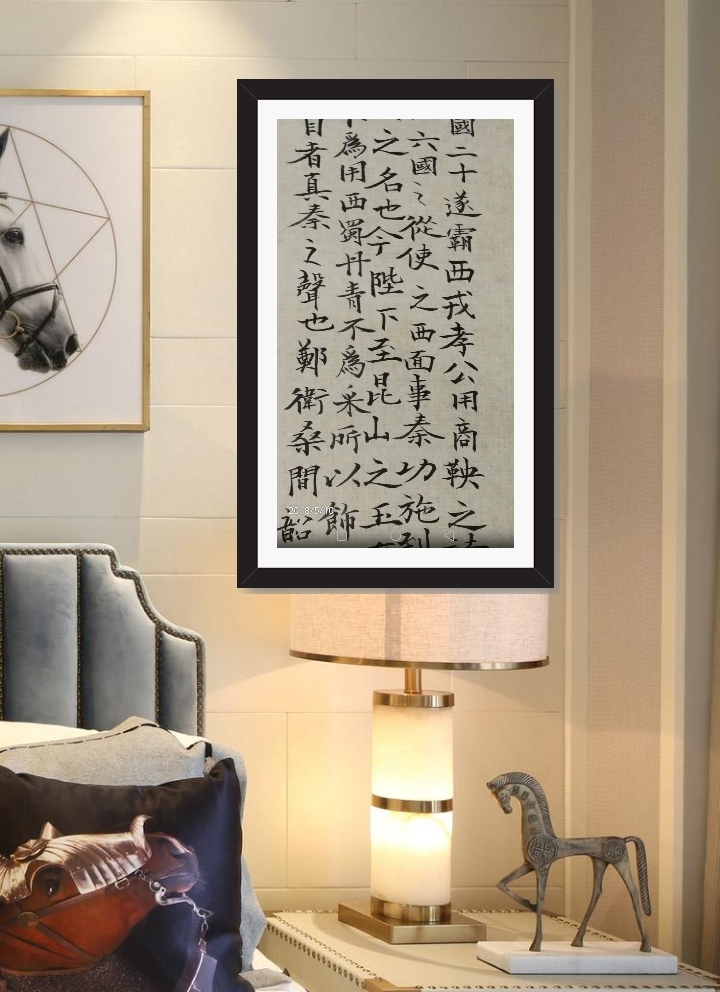 國二十遂霸西戎孝公用商鞅之
六國之從使之西面事秦功施到
之名也今陛下至昆山之玉
不爲用西蜀丹青不爲采所以飾
目者真秦之聲也鄭衛桑間韶
2018/5/10